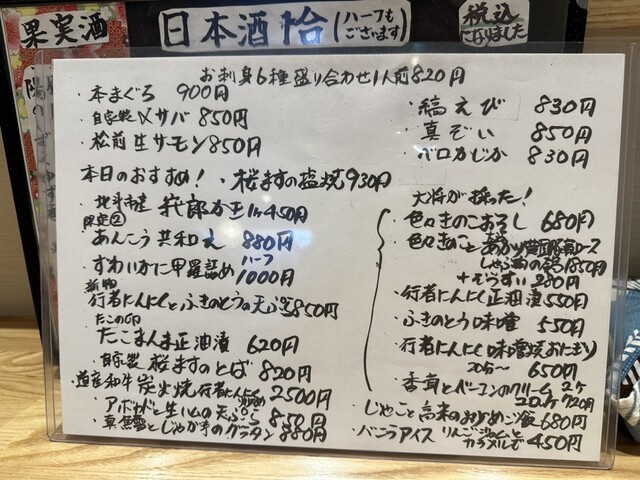 果実酒
日本酒 1合(ハーフもございます)
税込になりました
お刺身6種盛り合わせ1人前820円
・本まぐろ 900円
・自家製〆サバ 850円
・松前生サーモン850円
・縞えび 830円
・真ぞい 850円
・ベロカジか 830円
本日のおすすめ!・桜ますの塩焼930円
・北斗市産 峩郎かき1ヶ450円
限定②
・あんこう共和え 880円
・ずわいかに甲羅詰め ハーフ 1000円
新物
・行者にんにくとふきのとうの天ぷら850円
たこの卵
・たこまんま正油漬 620円
・自家製 桜ますのとば 820円
・道産和牛炭火焼行者にんにく 2500円
・アボカドと生ハムの天ぷら 850円
・真焦電とじゃが芋のグラタン 880円
大将が採った!
・色々きのこおろし 680円
・色々きのこと
しゃぶ 1850円
+ぞうすい 280円
・行者にんにく正油漬550円
・ふきのとう味噌 550円
・行者にんにく味噌焼おにぎり
20分〜 650円
・香茸とベーコンのクリーム 2ケ
コロッケ 720円
・じゃこと高菜のお炒めご飯680円
・バニラアイス りんごジャムと
カラメルで 450円